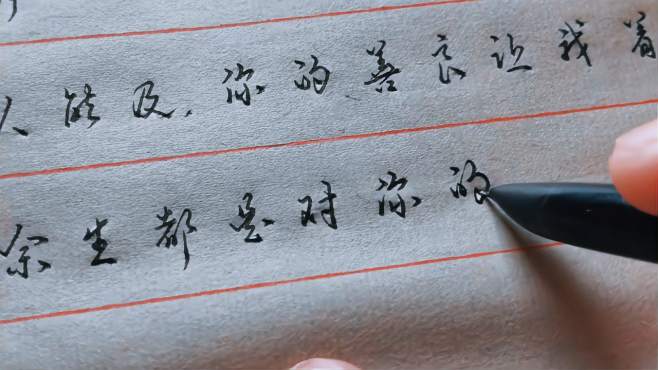 人能及，你的善良让我着
余生都是对你的